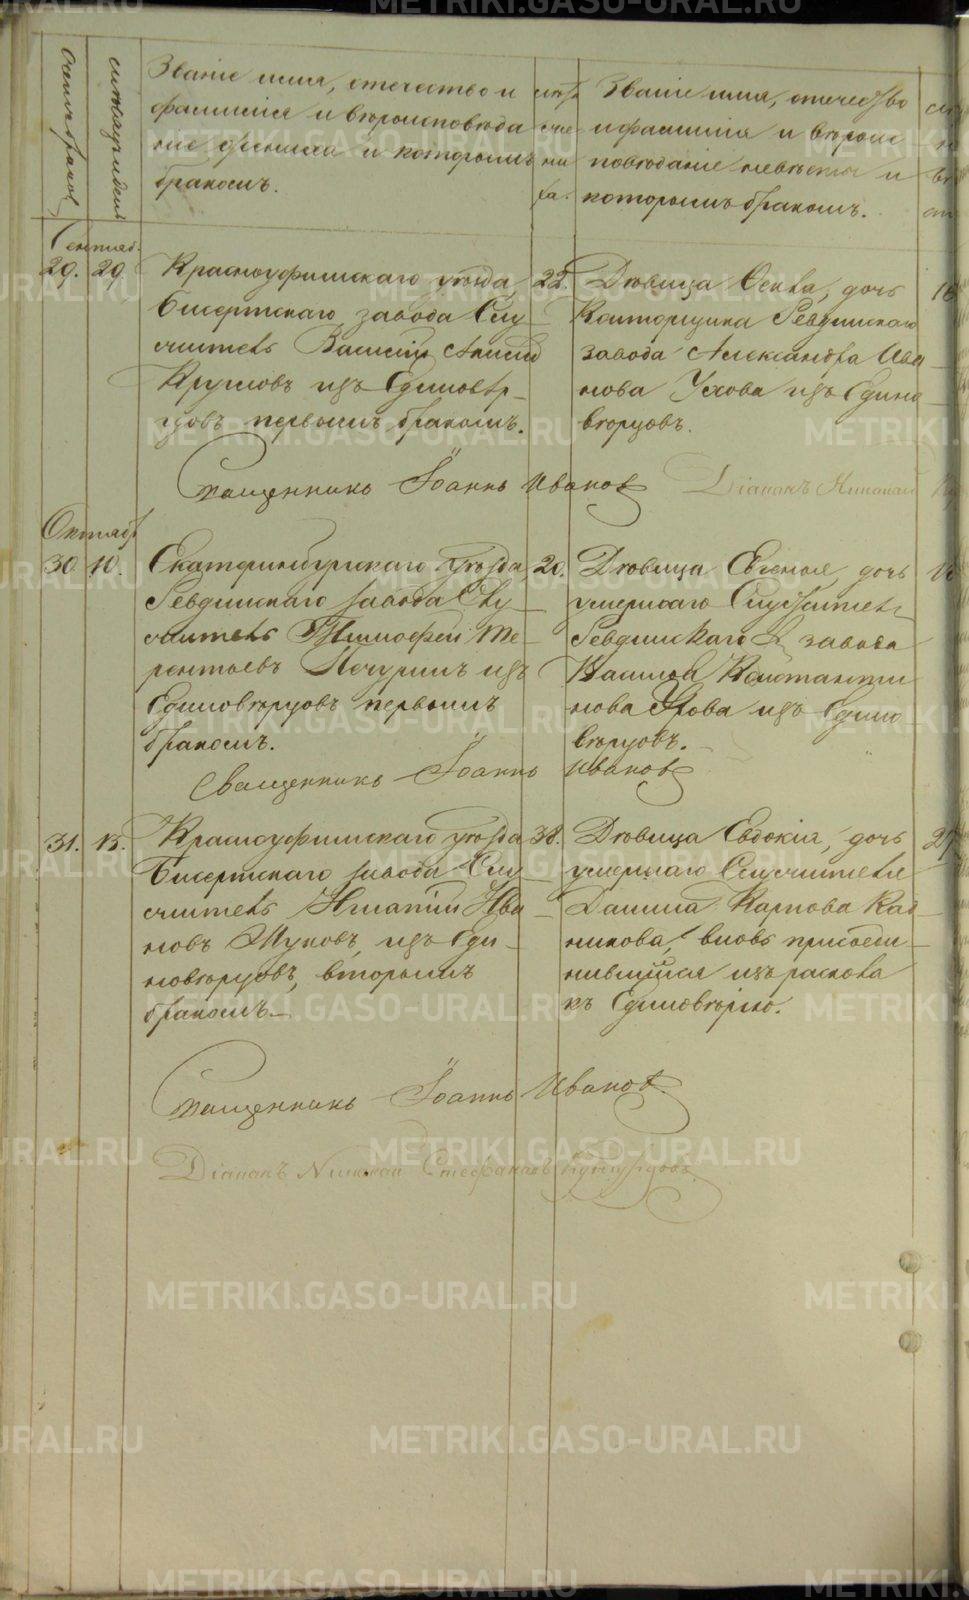 Счетъ браковъ
мѣсяцъ и день
Званіе имя, отечество и
фамилія и вѣроисповѣда
ніе жениха и которымъ
бракомъ.
лѣта
же
ни
ха.
Званіе имя, отечество
и фамилія и вѣроис
повѣданіе невѣсты и
которымъ бракомъ.
Сентяб.
29. 29.
Красноуфимскаго уѣзда,
Бисертскаго завода Слу
житель Василій
Кругловъ изъ Единовѣр-
цовъ первымъ бракомъ.
22.
Дѣвица дочь
Конторщика Ревдинскаго
завода Александра Ива
нова Ухова изъ Едино
вѣрцовъ.
Священникъ Іоаннъ Ивановъ
Діаконъ Николай
Октябр
30 10.
Екатеринбургскаго уѣзда
Ревдинскаго завода Слу
житель Тимофей Те-
рентьевъ Печуринъ изъ
Единовѣрцовъ первымъ
бракомъ.
20.
Дѣвица Евгенія, дочь
умершаго Служителя
Ревдинскаго завода
Константи
нова Ухова изъ Едино
вѣрцовъ.
Священникъ Іоаннъ Ивановъ
31. 15.
Красноуфимскаго уѣзда
Бисертскаго завода Слу
житель Игнатій Ива
новъ Жуковъ, изъ Еди-
новѣрцовъ, вторымъ
бракомъ.
38.
Дѣвица Евдокія, дочь
умершаго Служителя
Данила Карпова Кал
никова, вновь присоеди
нившаяся изъ раскола
къ Единовѣрію.
Священникъ Іоаннъ Ивановъ
Діаконъ Николай Стефановъ
METRIKI.GASO-URAL.RU